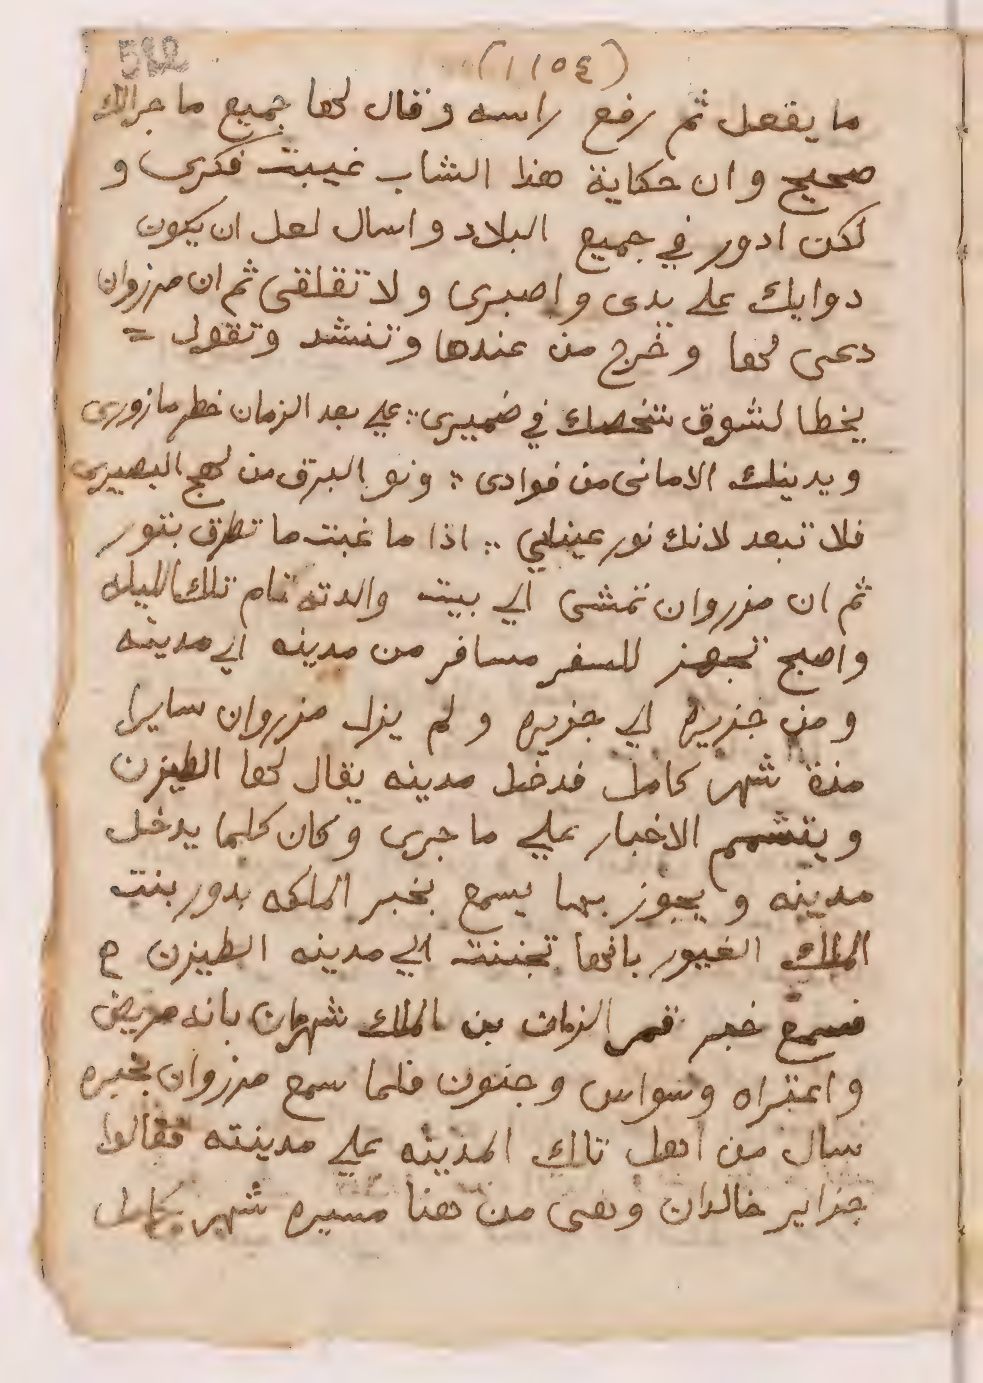 582
(١١٥٤)
ما يفعل ثم رفع راسه وقال لها جميع ما جرالك
صحيح وان حكاية هذا الشاب غيبت فكرى و
لكن ادور في جميع البلاد واسال لعل ان يكون
دوايك على يدى واصبرى ولا تقلقى ثم ان مرزوان
دعى لها وخرج من عندها وتنشد وتقول =
يخطا لشوق شخصك في ضميرى ؛ على بعد الزمان خطر ما زورى
ويدينك الامانى من فوادى ؛ ونو البرق من لهج البصيرى
فلا تبعد لانك نور عينايي ؛ اذا ما غبت ما تطرق بنور
ثم ان مزروان تمشى الي بيت والدته نام تلك الليله
واصبح تجهز للسفر مسافر من مدينه الي مدينه
ومن جزيره الي جزيره ولم يزل مزروان سايرا
مدة شهر كامل فدخل مدينه يقال لها الطيزن
ويتشمم الاخبار علي ما جرى وكان كلما يدخل
مدينه ويجوز بها يسمع بخبر الملكه بدور بنت
الملك الغيور بانها تجننت الي مدينه الطيزن
فسمع خبر قمر الزمان بن الملك شهرمان بانه مريض
واعتراه وسواس وجنون فلما سمع مرزوان بخبره
سال من اهل تلك المدينه علي مدينته فقالوا
جزاير خالدان وهى من هنا مسيره شهر بكامل